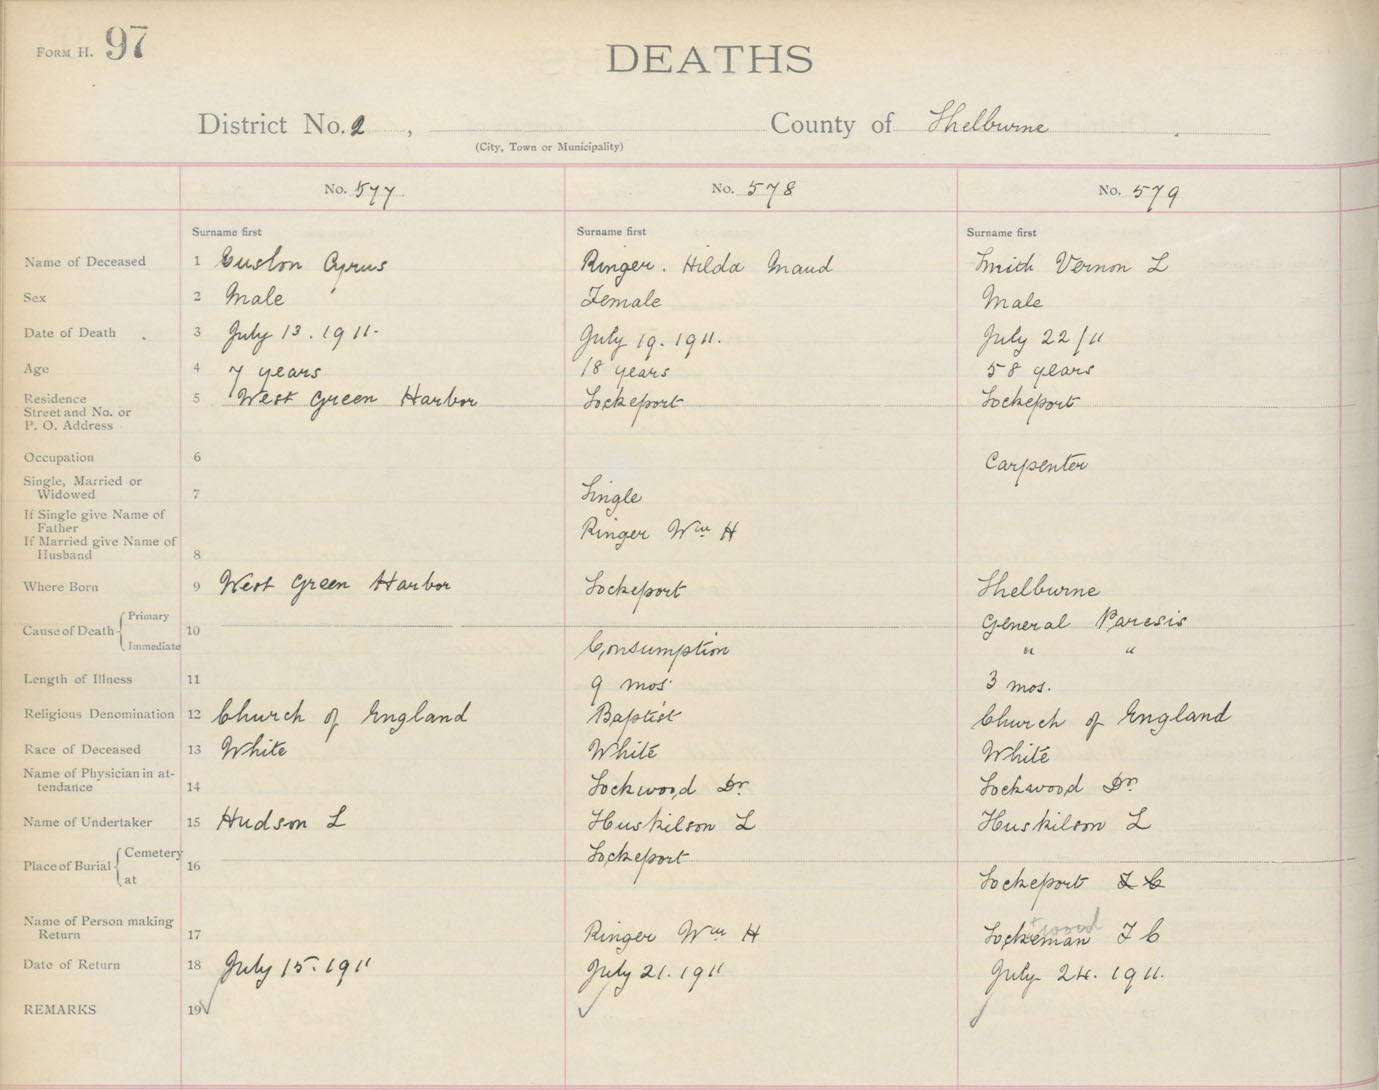 FORM H. 97
DEATHS
District No. 2, County of Shelburne
(City, Town or Municipality)
No. 577 No. 578 No. 579
Surname first Surname first Surname first
Name of Deceased 1 Cuslon Cyrus Ringer. Hilda Maud Smith Vernon L
Sex 2 Male Female Male
Date of Death 3 July 13. 1911. July 19. 1911. July 22/11
Age 4 7 years 18 years 58 years
Residence 5 West Green Harbor Lockeport Lockeport
Street and No. or
P. O. Address
Occupation 6 Carpenter
Single, Married or
Widowed 7 Single
If Single give Name of
Father Ringer Wm H
If Married give Name of
Husband 8
Where Born 9 West Green Harbor Lockeport Shelburne
Cause of Death Primary 10 General Paresis
Immediate Consumption " "
Length of Illness 11 9 mos. 3 mos.
Religious Denomination 12 Church of England Baptist Church of England
Race of Deceased 13 White White White
Name of Physician in at-
tendance 14 Lockwood Dr. Lockwood Dr.
Name of Undertaker 15 Hudson L Huskilson L Huskilson L
Place of Burial Cemetery 16 Lockeport
at Lockeport F C
wood
Name of Person making
Return 17 Ringer Wm H Lockeman F C
Date of Return 18 July 15. 1911 July 21. 1911 July 24. 1911.
REMARKS 19